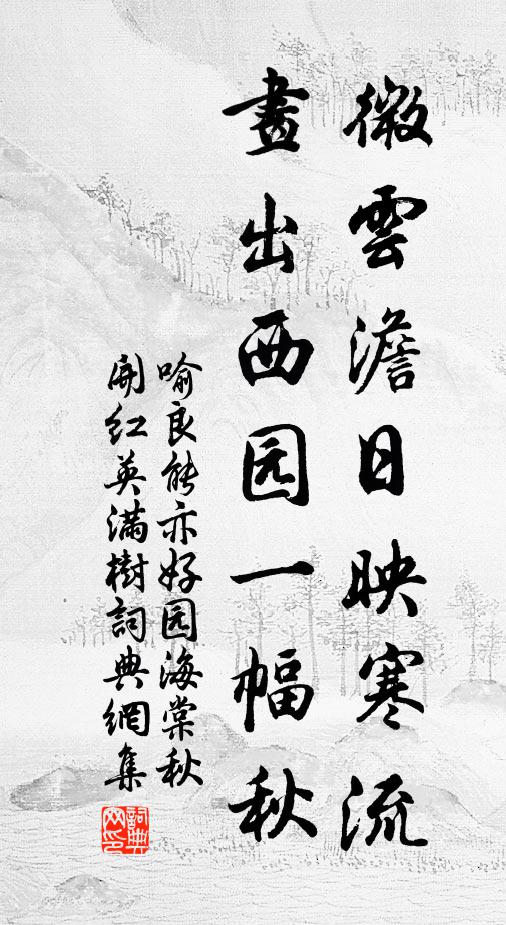 微雲澹日映寒流
畫出西园一幅秋
喻良能亦好园海棠秋
開红英满樹詞典網集
詞典网印